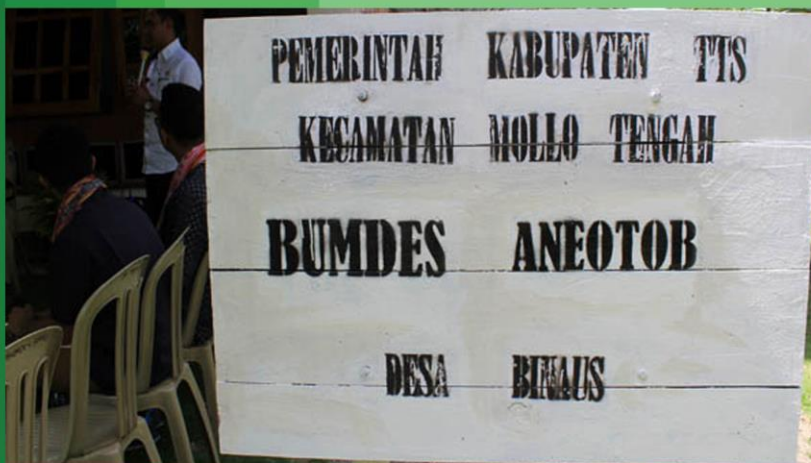 PEMERINTAH KABUPATEN TTS
KECAMATAN MOLLO TENGAH
BUMDES ANEOTOB
DESA BINAUS